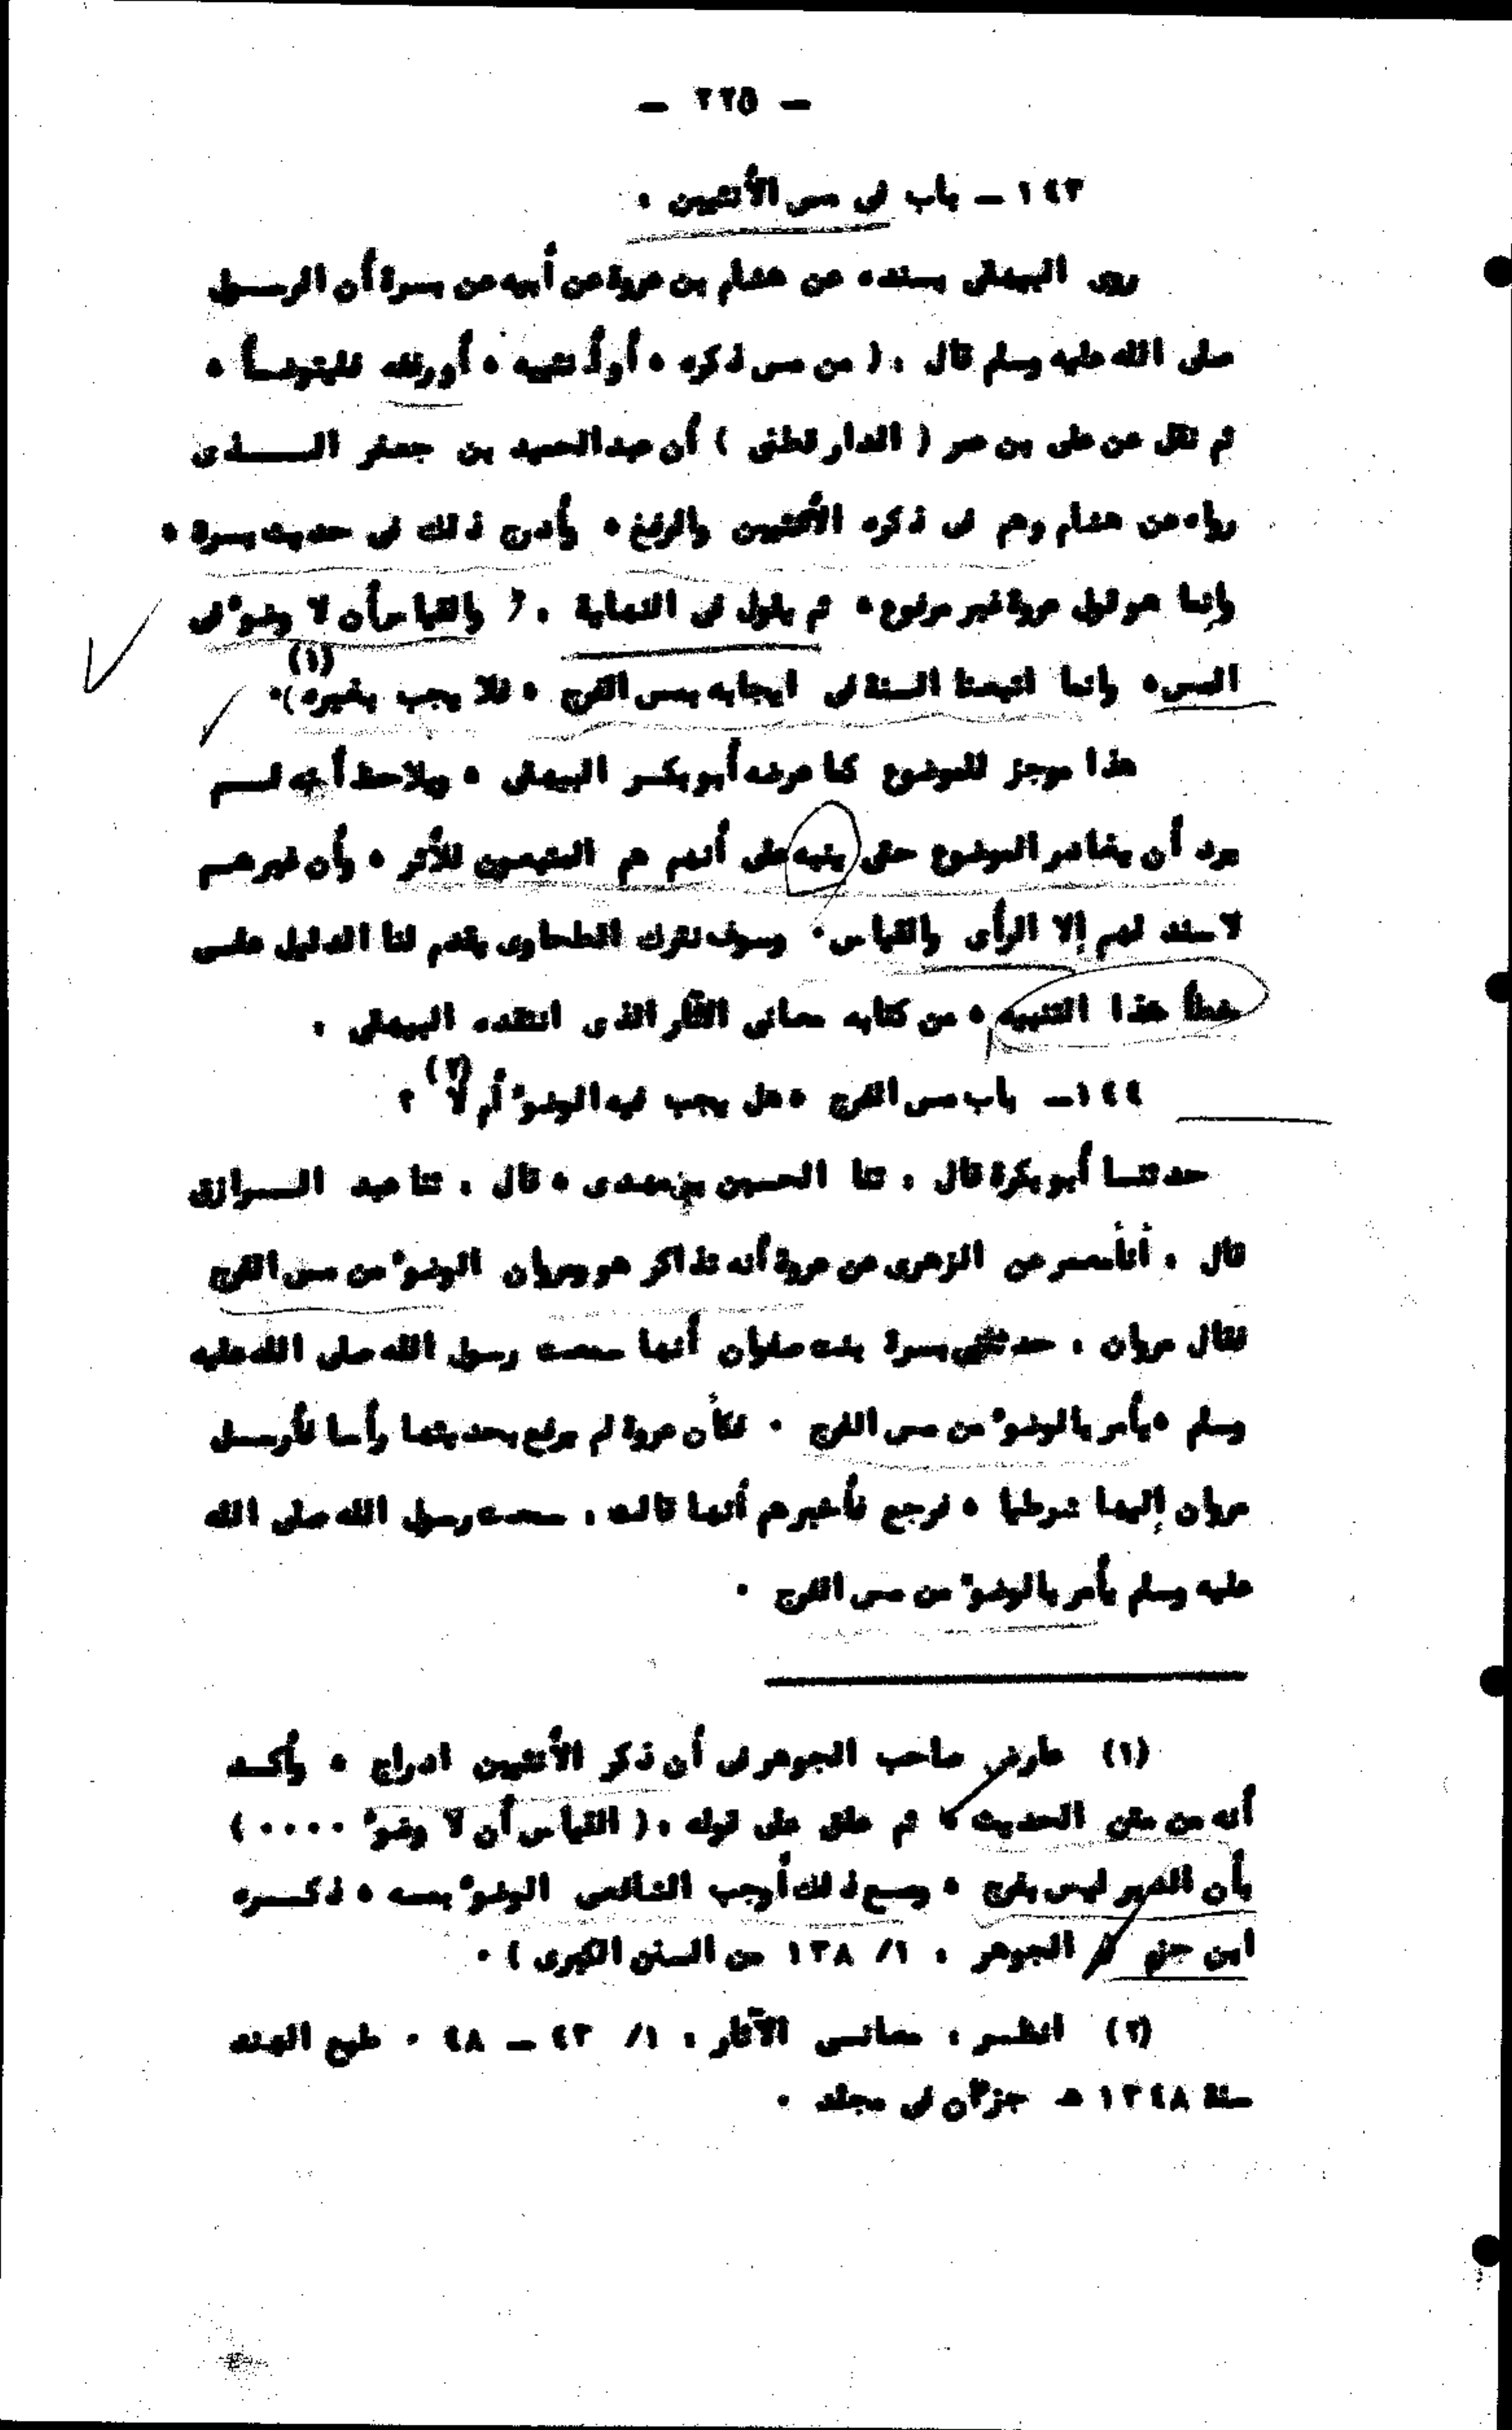 — ٢٢٥ —
١٤٣ — باب في مس الأنثيين ٠
روى البيهقي بسنده عن هشام بن عروة عن أبيه عن بسرة أن الرسول
صلى الله عليه وسلم قال : ( من مس ذكره ، أو أنثييه ، أو رفغه فليتوضأ ،
ثم نقل عن علي بن عمر ( الدارقطني ) أن عبدالحميد بن جعفر الـــذى
رواه عن هشام وهم في ذكره الأنثيين والرفغ ، وأدرج ذلك في حديث بسرة ،
وإنما هو قول عروة غير مرفوع ، ثم يقول في النهاية : ( والقياس أن لا وضوء في
المس ، وانما اتبعنا السنة في ايجابه بمس الفرج ، فلا يجب بغيره ) (١) ٠
هذا موجز للموضوع كما عرضه أبو بكر البيهقي ، ويلاحظ أنه لـم
يرد أن يغادر الموضوع حتى ينبه على أنهم هم المتبعون للأثر ، وأن غيرهم
لا سند لهم إلا الرأى والقياس ٠ وسوف نترك الطحاوى يقدم لنا الدليل على
خطأ هذا التنبيه ، من كتابه معاني الآثار الذى انتقده البيهقي ٠
١٤٤ — باب مس الفرج ، هل يجب فيه الوضوء أم لا (٢) ؟
حدثنا أبو بكرة قال : ثنا الحسين بن مهدى ، قال : ثنا عبد الرازق
قال : أنا معمر عن الزهرى عن عروة أنه تذاكر هو ومروان الوضوء من مس الفرج
فقال مروان : حدثتني بسرة بنت صفوان أنها سمعت رسول الله صلى الله عليه
وسلم ، يأمر بالوضوء من مس الفرج ٠ فكأن عروة لم يرفع بحديثها رأسا فأرسل
مروان إليها شرطيا ، فرجع فأخبرهم أنها قالت : سمعت رسول الله صلى الله
عليه وسلم يأمر بالوضوء من مس الفرج ٠
(١) عارض صاحب الجوهر في أن ذكر الأنثيين ادراج ، وأكد
أنه من متن الحديث ، ثم علق على قوله : ( القياس أن لا وضوء ٠٠٠٠ )
بأن الدبر ليس بفرج ، ومع ذلك أوجب الشافعي الوضوء بمسه ، ذكره
ابن حزم ( الجوهر : ١/ ١٣٨ من السنن الكبرى ) ٠
(٢) انظر : معاني الآثار : ١/ ٤٣ — ٤٨ ٠ طبع الهند
سنة ١٣٤٨ هـ جزآن في مجلد ٠